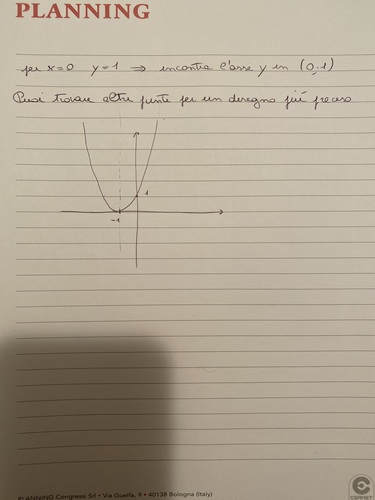 PLANNING
per x=0 y=1 ⇒ incontra l'asse y in (0,1)
Puoi trovare altri punti per un disegno più preciso
1
-1
PLANNING Congress Srl • Via Guelfa, 9 • 40138 Bologna (Italy)